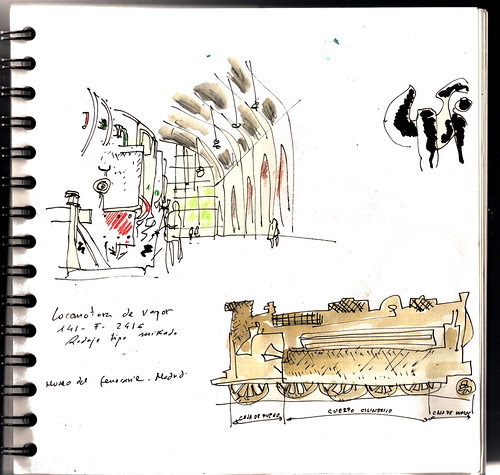 Locomotora de vapor
141-F-2416
Rodaje tipo mikado
Museo del ferrocarril. Madrid
CAJA DE FUEGO CUERPO CILINDRICO CAJA DE HUMOS